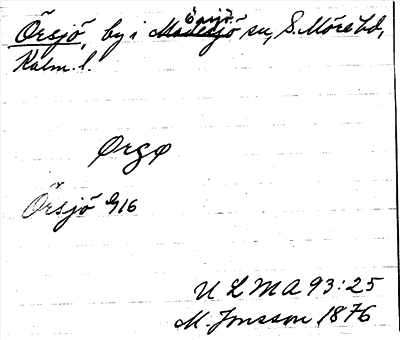 Örsjö, by i Madesjö Örsjö sn, S. Möre hd,
Kalm. l.
Ørgø
Örsjö G16
ULMA 93:25
M. Jonsson 1876